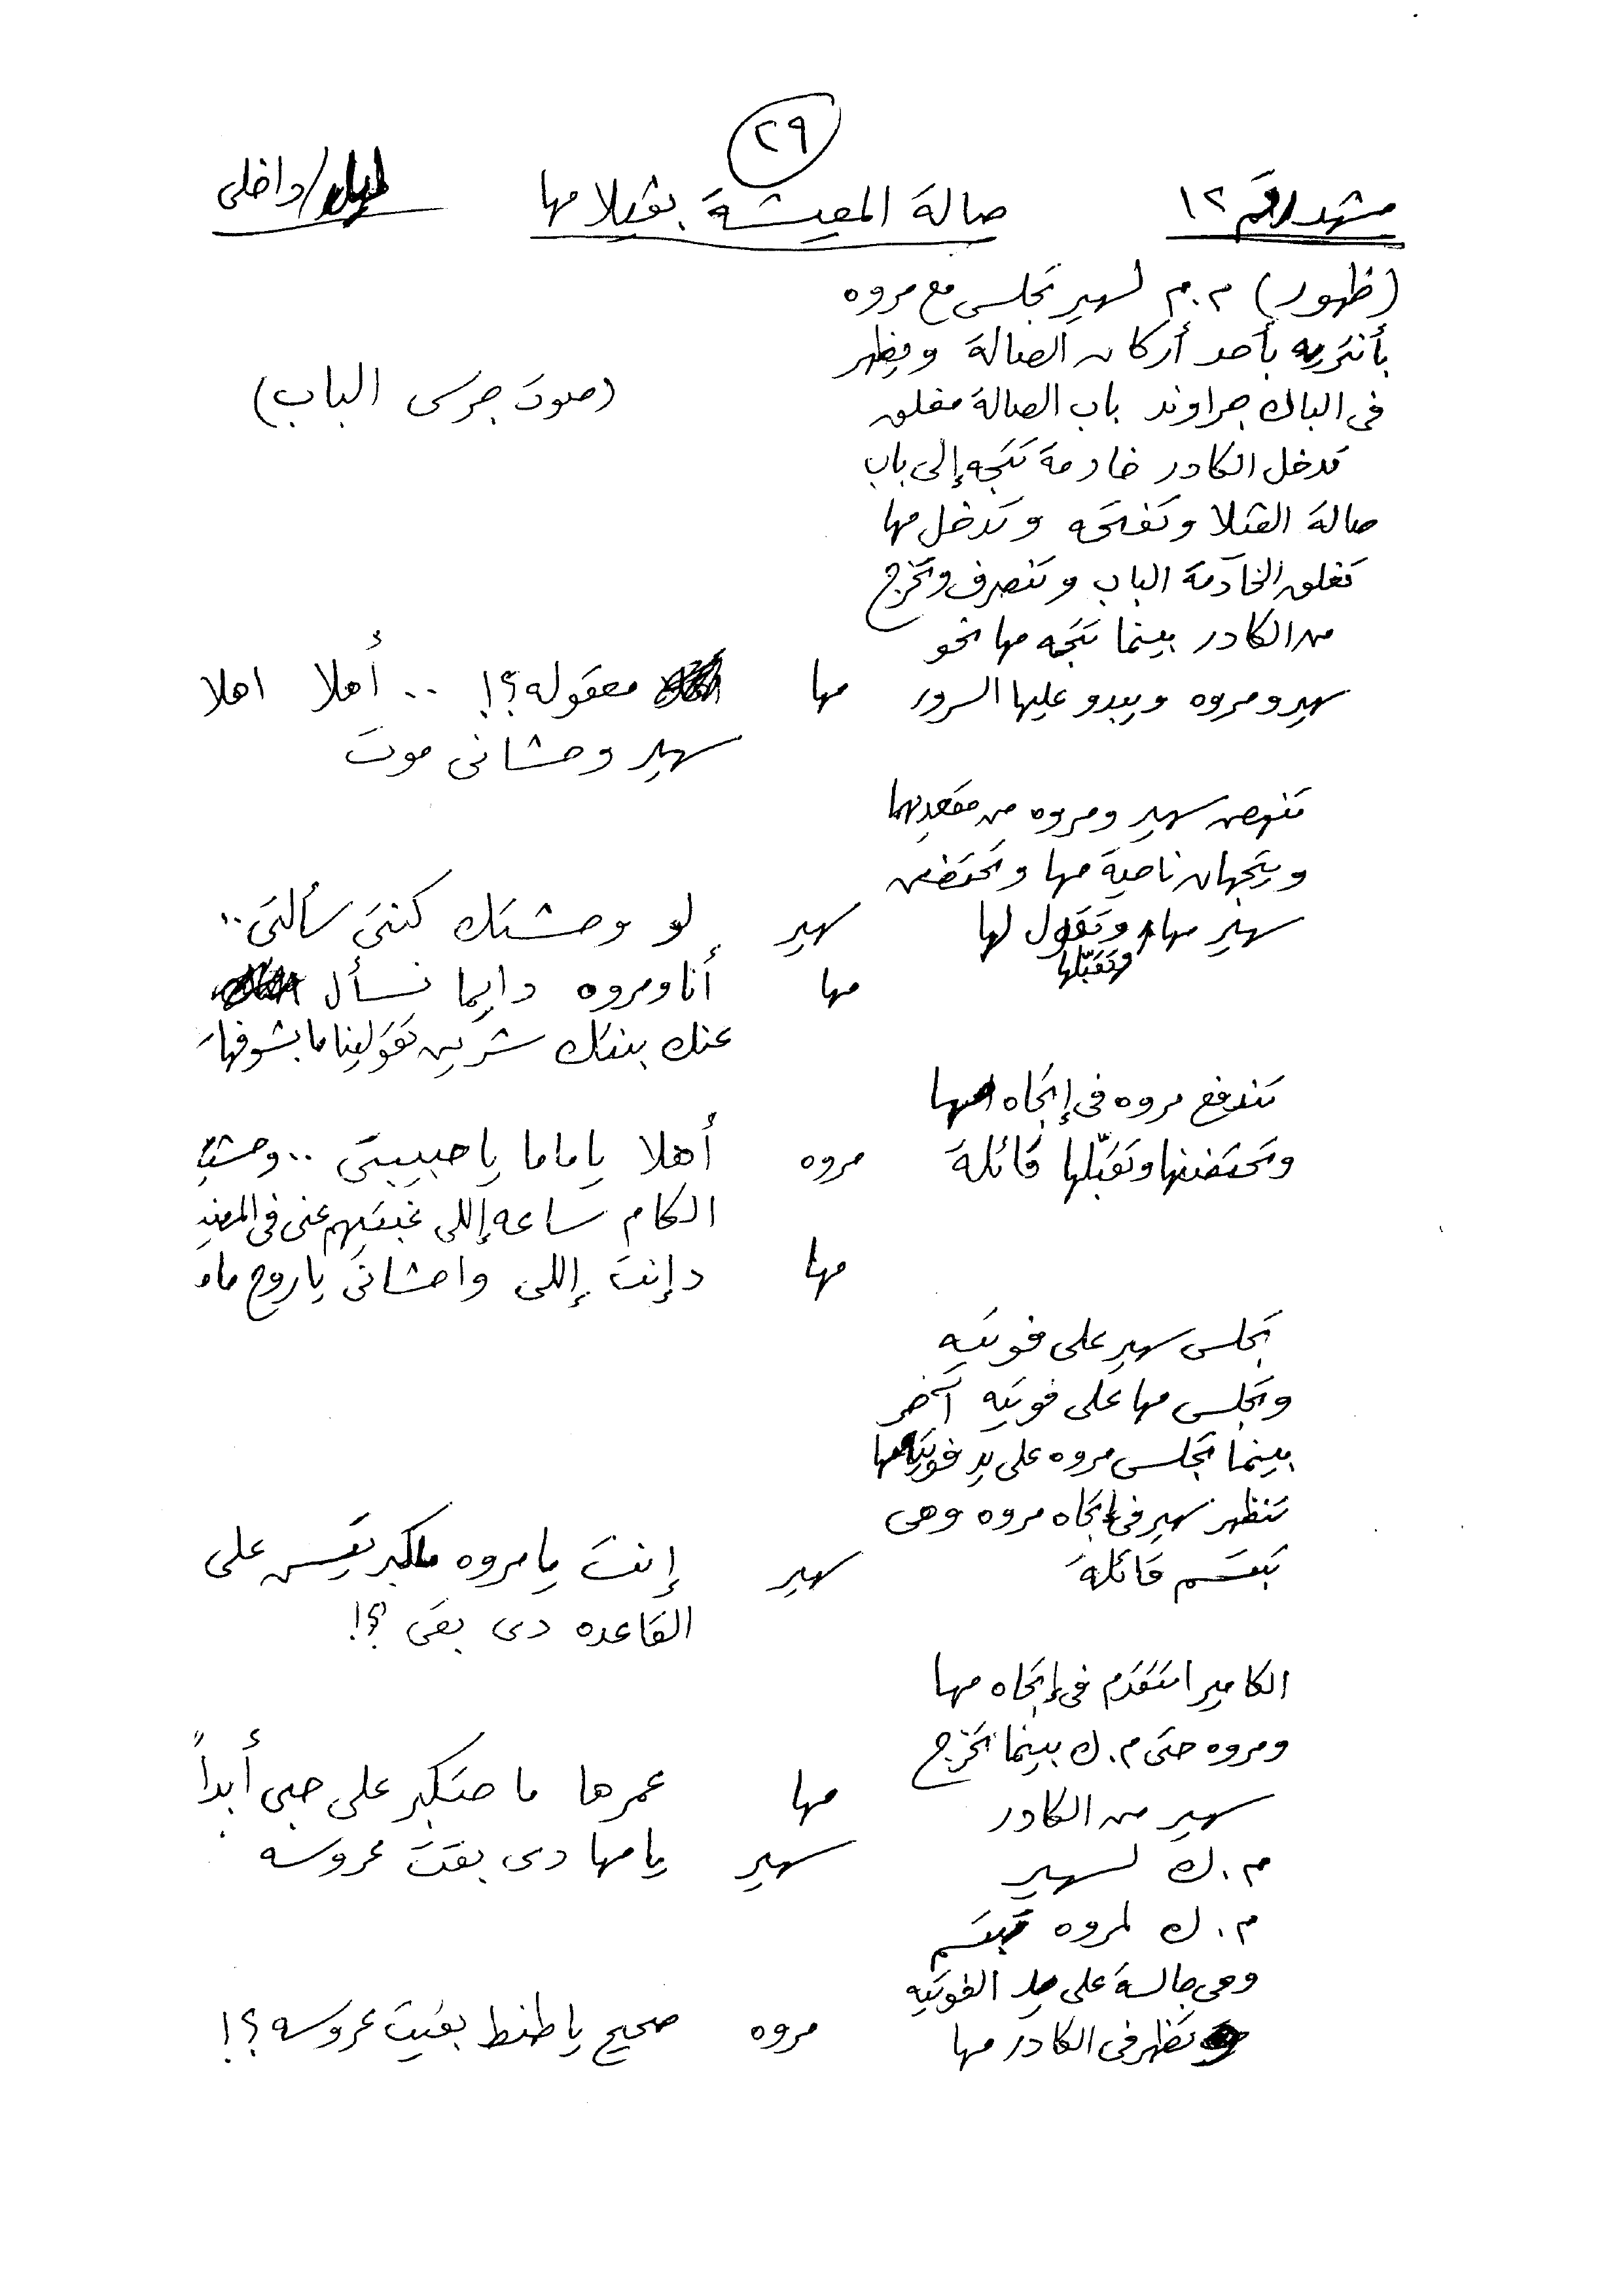 ٢٩
مشهد رقم ١٢ صالة المعيشة بڤيلا مها ليل/داخلى
(ظهور) م.م لسهير تجلس مع مروه
بأنتريه بأحد أركان الصالة ويظهر
فى الباك جراوند باب الصالة مغلق (صوت جرس الباب)
تدخل الكادر خادمة تتجه إلى باب
صالة الڤيلا وتفتحه وتدخل مها
تغلق الخادمة الباب وتنصرف وتخرج
من الكادر بينما تتجه مها نحو
سهير ومروه ويبدو عليها السرور مها معقوله؟! .. أهلا اهلا
سهير وحشانى موت
تنهض سهير ومروه من مقعديهما
ويتجهان ناحية مها وتحتضن
سهير مها وتقبّلها وتقول لها سهير لو وحشتك كنتى سألتى..
مها أنا ومروه دايما نسأل
عنك بنتك شرين تقولينا ما بشوفهاش
تندفع مروه فى إتجاه مها
وتحتضنها وتقبّلها قائلة مروه أهلا ياماما ياحبيبتى .. وحشتينى
الكام ساعه إللى غبتيهم عنى فى
مها دإنت إللى واحشانى ياروح ماما
تجلس سهير على فوتيه
وتجلس مها على فوتيه آخر
بينما تجلس مروه على يد فوتيه مها
تنظر سهير فى إتجاه مروه وهى
تبتسم قائلة سهير إنت يامروه مكبرتيش على
القاعده دى بقى ؟!
الكاميرا تتقدم فى إتجاه مها
ومروه حتى م.ك بينما تخرج
سهير من الكادر مها عمرها ما حتكبر على حبى أبداً
م.ك لسهير سهير يامها دى بقت عروسه
م.ك لمروه تبتسم
وهى جالسة على يد الفوتيه
وتظهر فى الكادر مها مروه صحيح ياطنط بقيت عروسه؟!